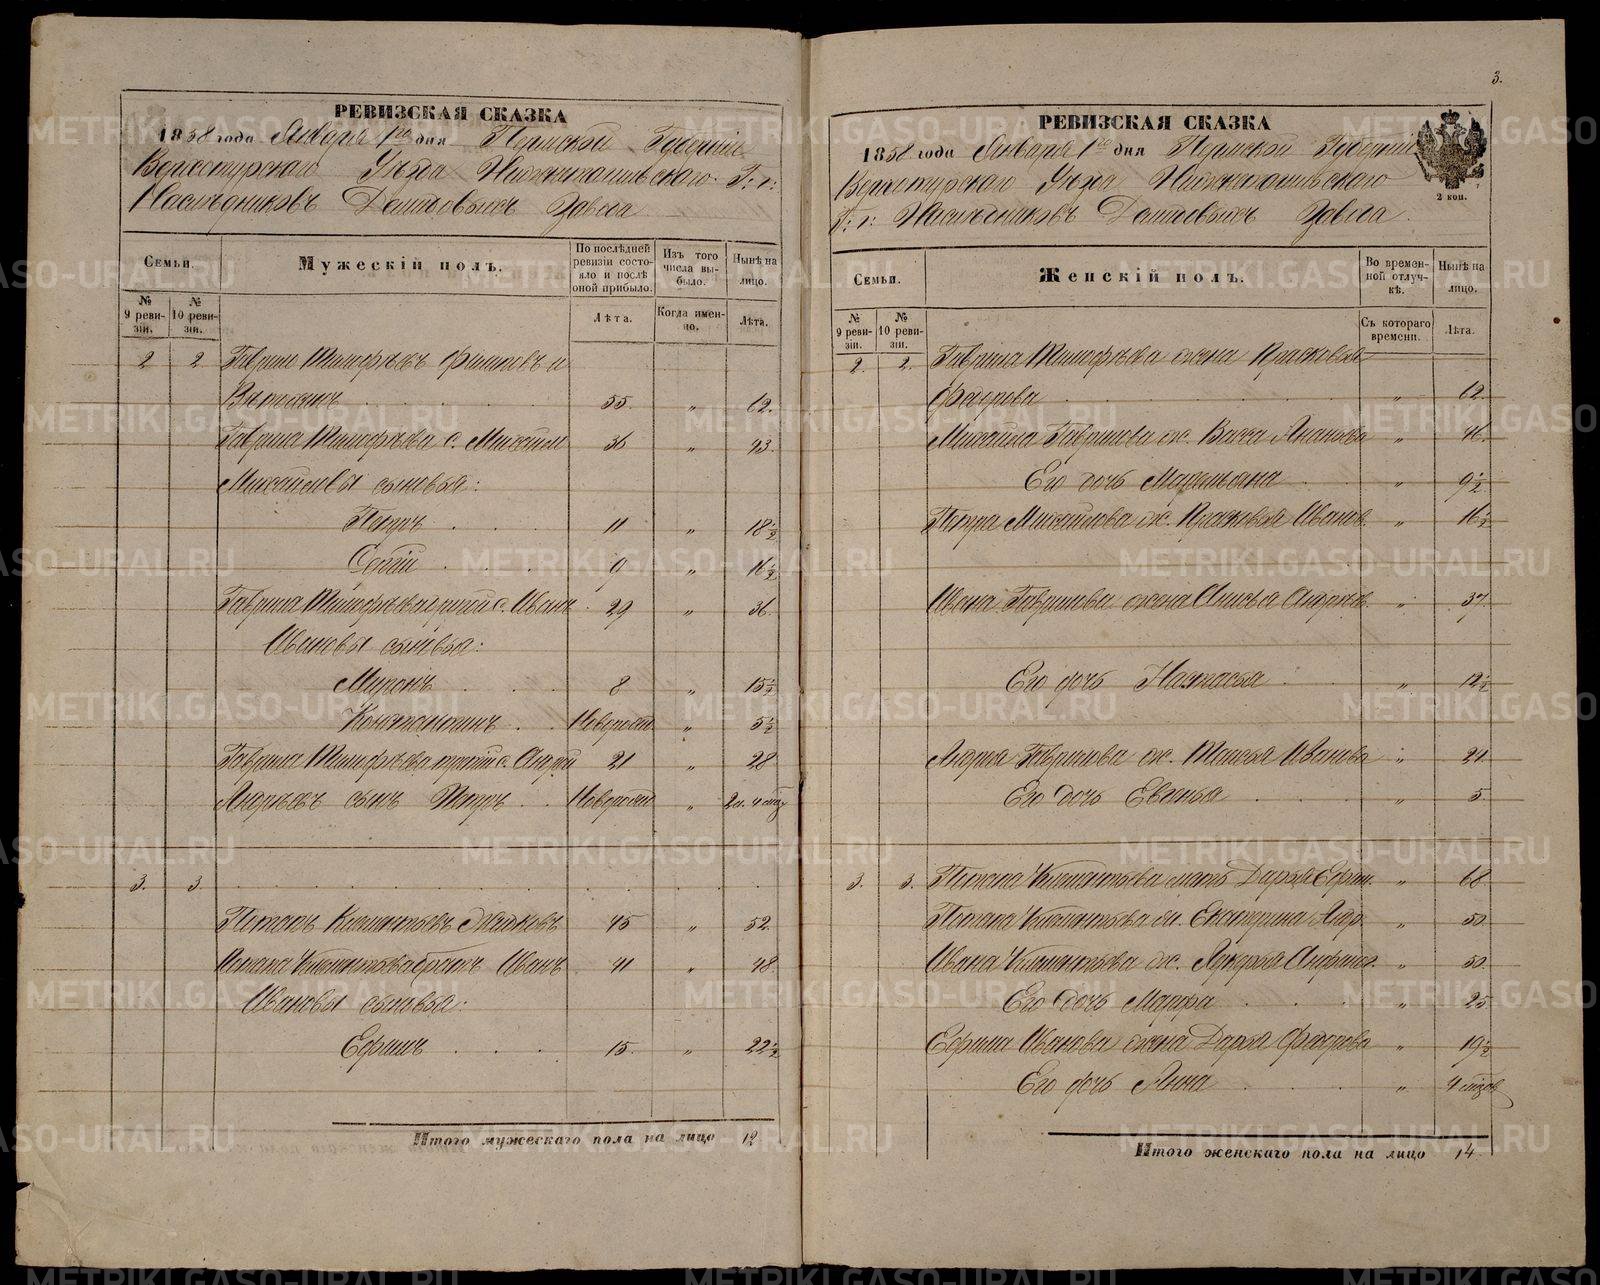 РЕВИЗСКАЯ СКАЗКА
1858 года Января 1го дня Пермской Губерніи
Верхотурскаго Уѣзда Нижнетагильскаго Г: г:
Наслѣдниковъ Демидовыхъ Завода
Семьи.
Мужескій полъ.
По послѣдней ревизіи состояло и послѣ оной прибыло.
Изъ того числа выбыло.
Нынѣ на лицо.
№ 9 ревизіи.
№ 10 ревизіи.
Лѣта.
Когда именно.
Лѣта.
2 2 Гаврило Тимофѣевъ
55. " 62.
Гаврила Тимофѣева с. Михаилъ 36 " 43.
Михаиловы сыновья:
Петръ 11 " 18 1/2
Сергій 9 " 16 1/2
Гаврила Тимофѣева другой с. Иванъ 29 " 36.
Ивановы сыновья:
Миронъ 8 " 15 1/2
Константинъ Новорожд. " 5 1/2
Гаврила Тимофѣева третій с. Андрей 21 " 28
Андреевъ сынъ Петръ Новорожд. " 2 л. 4 мѣц
3. 3.
Потапъ Климентьевъ 45 " 52.
Потапа Климентьева братъ Иванъ 41 " 48.
Ивановы сыновья:
Ефимъ 15. " 22 1/2
Итого мужескаго пола на лицо 12
3.
РЕВИЗСКАЯ СКАЗКА
1858 года Января 1го дня Пермской Губерніи
2 коп.
Верхотурскаго Уѣзда Нижнетагильскаго
Г: г: Наслѣдниковъ Демидовыхъ Завода.
Семьи.
Женскій полъ.
Во временной отлучкѣ.
Нынѣ на лицо.
№ 9 ревизіи.
№ 10 ревизіи.
Съ котораго времени.
Лѣта.
2. 2. Гаврила Тимофѣева жена Прасковья
Федорова " 62.
Михаила Гаврилова ж. Васса Ананьева " 46.
Его дочь Маремьяна " 9 1/2
Петра Михайлова ж. Прасковья Иванов. " 16 1/2
Ивана Гаврилова жена Анисья Андреев. " 37.
Его дочь Настасья " 12 1/2
Андрея Гаврилова ж. Таисья Иванова " 24.
Его дочь Евгенья " 5.
3. 3. Потапа Климентьева мать Дарья Ефим. " 68.
Потапа Климентьева ж. Екатерина " 50.
Ивана Климентьева ж. Лукерья " 50.
Его дочь Марфа " 25.
Ефима Иванова жена Дарья Федорова " 19 1/2
Его дочь Анна " 4 мѣцов
Итого женскаго пола на лицо 14.
METRIKI.GASO-URAL.RU